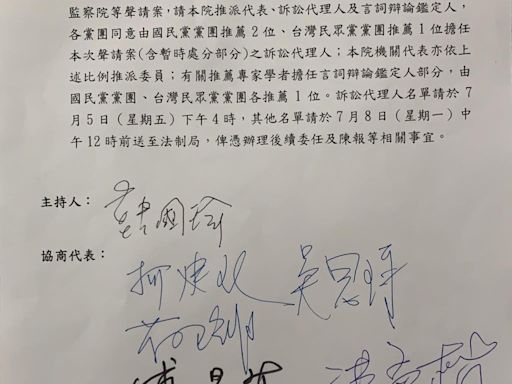 監察院等聲請案，請本院推派代表、訴訟代理人及言詞辯論鑑定人，
各黨團同意由國民黨黨團推薦2位、台灣民眾黨黨團推薦1位擔任
本次聲請案(含暫時處分部分)之訴訟代理人；本院機關代表亦依上
述比例推派委員；有關推薦專家學者擔任言詞辯論鑑定人部分，由
國民黨黨團、台灣民眾黨黨團各推薦1位。訴訟代理人名單請於7
月5日（星期五）下午4時，其他名單請於7月8日（星期一）中
午12時前送至法制局，俾憑辦理後續委任及陳報等相關事宜。
主持人：
韓國瑜
協商代表：
柯建銘 吳思瑤